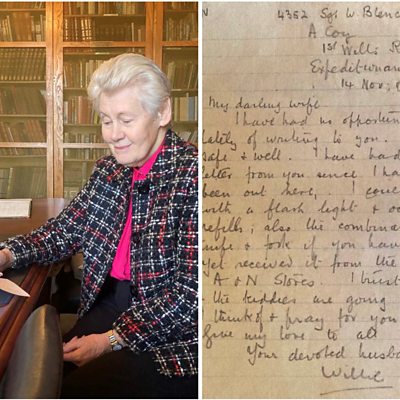 N 4352 Sgt W. Blenc
A Coy
1st Wilts R
Expeditionar
14 Nov,
My darling wife
I have had no opportun
lately of writing to you.
safe & well I have had
letter from you since I ha
been out here, I coul
with a flash light &
refills; also the combina
knife & fork if you have
yet received it from the
A & N Stores. I trust
the kiddies are going
think of & pray for you
Give my love to all
Your devoted husba
Willie